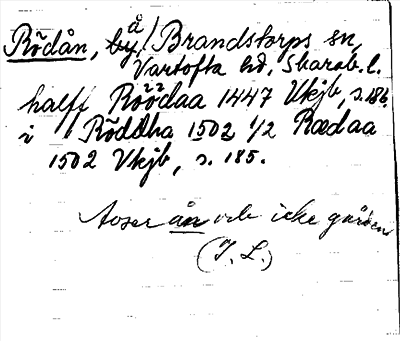 Rödån, by å / Brandstorps sn,
Vartofta hd, Skarab. l.
halff Röödaa 1447 Vkjb, s. 186.
i Röddha 1502 1/2 Rædaa
1502 Vkjb, s. 185.
Avser ån och icke gården
(I. L.)